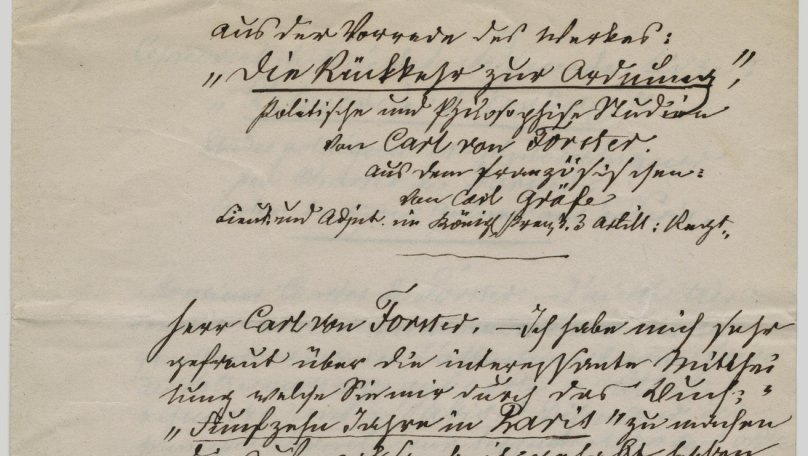 aus der Vorrede des Werkes:
„Die Rückkehr zur Ordnung",
Politische und Philosophische Studien
von Carl von Forster.
aus dem französischen:
von Carl Gräfe
Lieut: und Adjut. im Königl. preuß. 3 Artill: Regt.,
Herr Carl von Forster. – Ich habe mich sehr
gefreut über die interessante Mitthei
lung welche Sie mir durch das Buch: "
„Funfzehn Jahre in Paris" zu machen
die